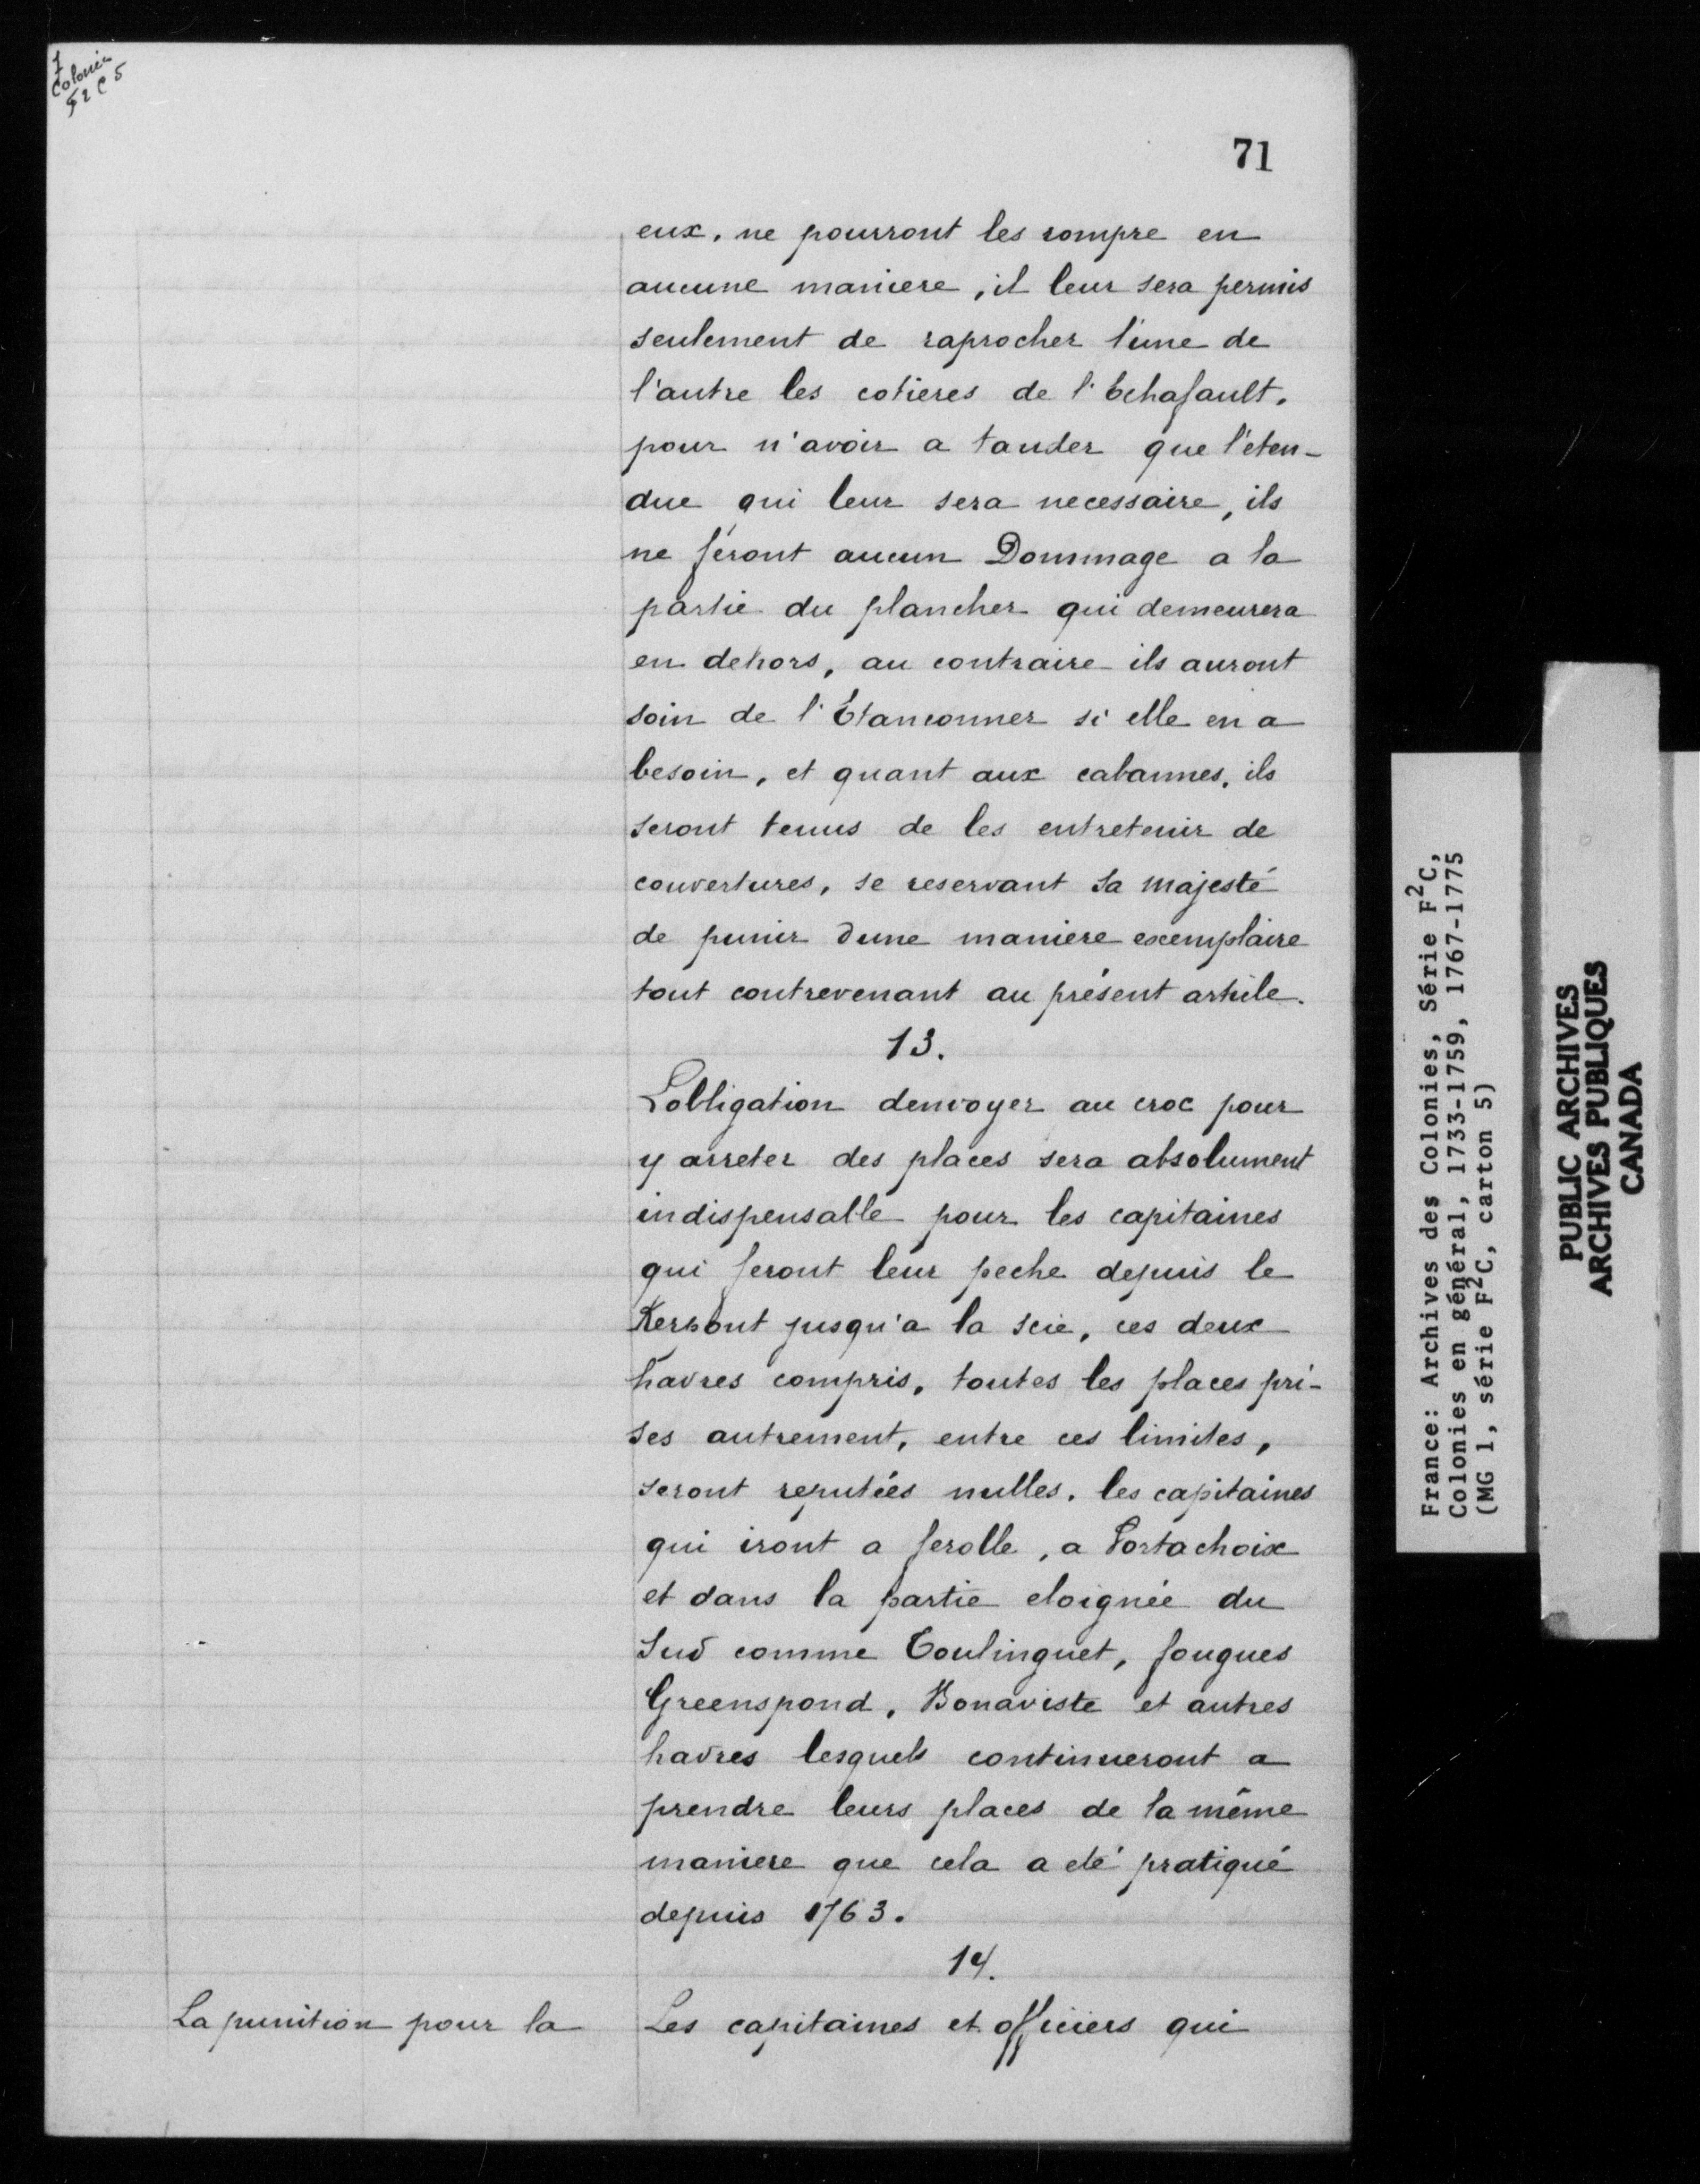 1
Colonies
F2 C 5
71
eux, ne pourront les rompre en
aucune maniere, il leur sera permis
seulement de raprocher l'une de
l'autre les cotieres de l'Echafault,
pour n'avoir a tauder que l'éten-
due qui leur sera necessaire, ils
ne feront aucun Dommage a la
partie du plancher qui demeurera
en dehors, au contraire ils auront
soin de l'Etanconner si elle en a
besoin, et quant aux cabannes, ils
seront tenus de les entretenir de
couvertures, se reservant Sa Majesté
de punir dune maniere exemplaire
tout contrevenant au présent article.
13.
Lobligation denvoyer au croc pour
y arreter des places sera absolument
indispensable pour les capitaines
qui feront leur peche depuis le
Kerpont jusqu'a la scie, ces deux
havres compris, toutes les places pri-
ses autrement, entre ces limites,
seront reputées nulles. les capitaines
qui iront a ferolle, a Portachoix
et dans la partie eloignée du
Sud comme Toulinguet, fougues
Greenspond, Bonaviste et autres
havres lesquels continueront a
prendre leurs places de la même
maniere que cela a été pratiqué
depuis 1763.
14.
La punition pour la
Les capitaines et officiers qui
France: Archives des Colonies, Série F2C,
Colonies en général, 1733-1759, 1767-1775
(MG 1, série F2C, carton 5)
PUBLIC ARCHIVES
ARCHIVES PUBLIQUES
CANADA